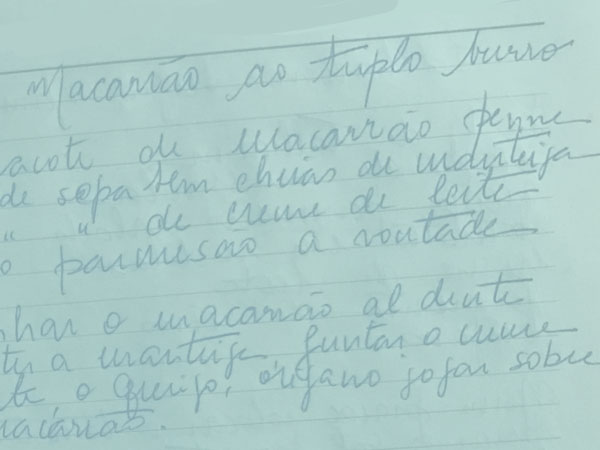 Macarrão ao tuplo burro
acote de macarrão penne
de sopa bem cheias de manteiga
" " de creme de leite
o parmesão a vontade
nhar o macarrão al dente
ter a manteiga, juntar o creme
te o queijo, órgano jogar sobre
macarrão.